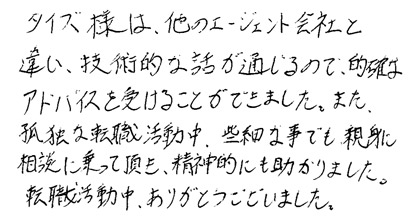 タイズ様は、他のエージェント会社と
違い、技術的な話が通じるので、的確な
アドバイスを受けることができました。また、
孤独な転職活動中、些細な事でも親身に
相談に乗って頂き、精神的にも助かりました。
転職活動中、ありがとうございました。